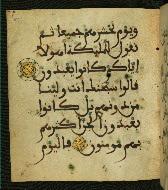 ويوم نحشرهم جميعا ثم
نقول للملئكة أهؤلاء
إياكم كانوا يعبدون
قالوا سبحنك أنت ولينا
من دونهم بل كانوا
يعبدون الجن أكثرهم
بهم مؤمنون فاليوم